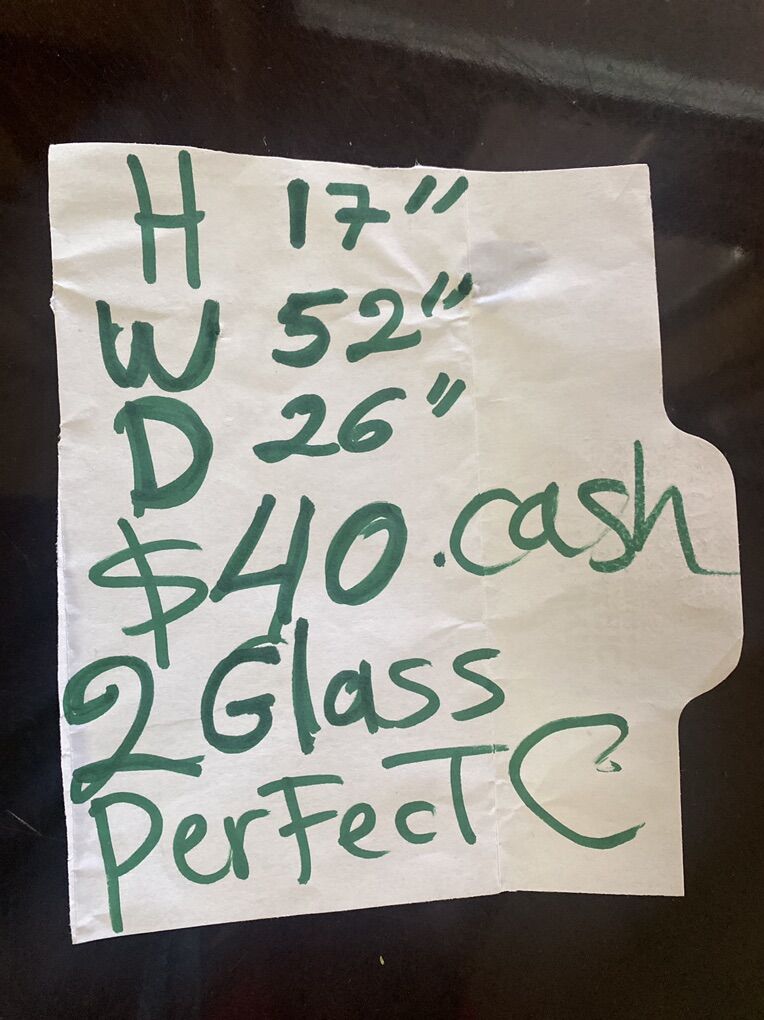 H 17"
W 52"
D 26"
$40.cash
2 Glass
PerFecT C